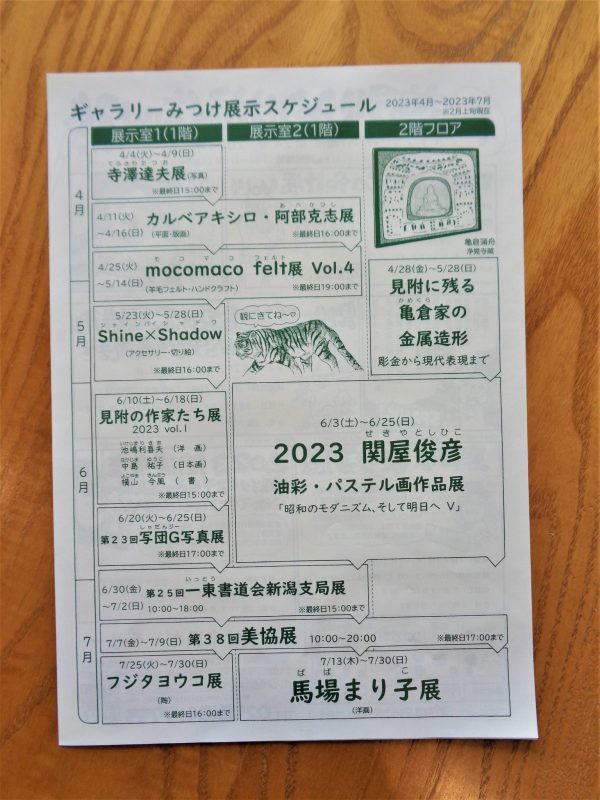 ギャラリーみつけ展示スケジュール
2023年4月～2023年7月
※2月上旬現在
展示室1(1階)
展示室2(1階)
2階フロア
4月
4/4(火)～4/9(日)
てらさわたつお
寺澤達夫展(写真)
※最終日15:00まで
4/11(火)
～4/16(日)
あべかつし
カルベアキシロ・阿部克志展
(平面・版画)
※最終日16:00まで
亀倉蒲舟
浄覚寺蔵
4/25(火)
～5/14(日)
モコマコ フェルト
mocomaco felt展 Vol.4
(羊毛フェルト・ハンドクラフト)
※最終日19:00まで
4/28(金)～5/28(日)
見附に残る
かめくら
亀倉家の
金属造形
彫金から現代表現まで
5月
5/23(火)～5/28(日)
シャインバイシャドウ
Shine×Shadow
(アクセサリー・切り絵)
※最終日16:00まで
観にきてね～♡
6月
6/10(土)～6/18(日)
見附の作家たち展
2023 vol.1
池嶋利喜夫 (洋画)
中島祐子 (日本画)
横山今風 (書)
※最終日15:00まで
6/3(土)～6/25(日)
せきやとしひこ
2023 関屋俊彦
油彩・パステル画作品展
「昭和のモダニズム、そして明日へ Ⅴ」
6/20(火)～6/25(日)
しゃだんジー
第23回写団G写真展
※最終日17:00まで
6/30(金)
～7/2(日)
いっとう
第25回一東書道会新潟支局展
10:00～18:00
※最終日15:00まで
7月
7/7(金)～7/9(日) 第38回美協展 10:00～20:00 ※最終日17:00まで
7/25(火)～7/30(日)
フジタヨウコ展
(陶)
※最終日16:00まで
7/13(木)～7/30(日)
ばば こ
馬場まり子展
(洋画)